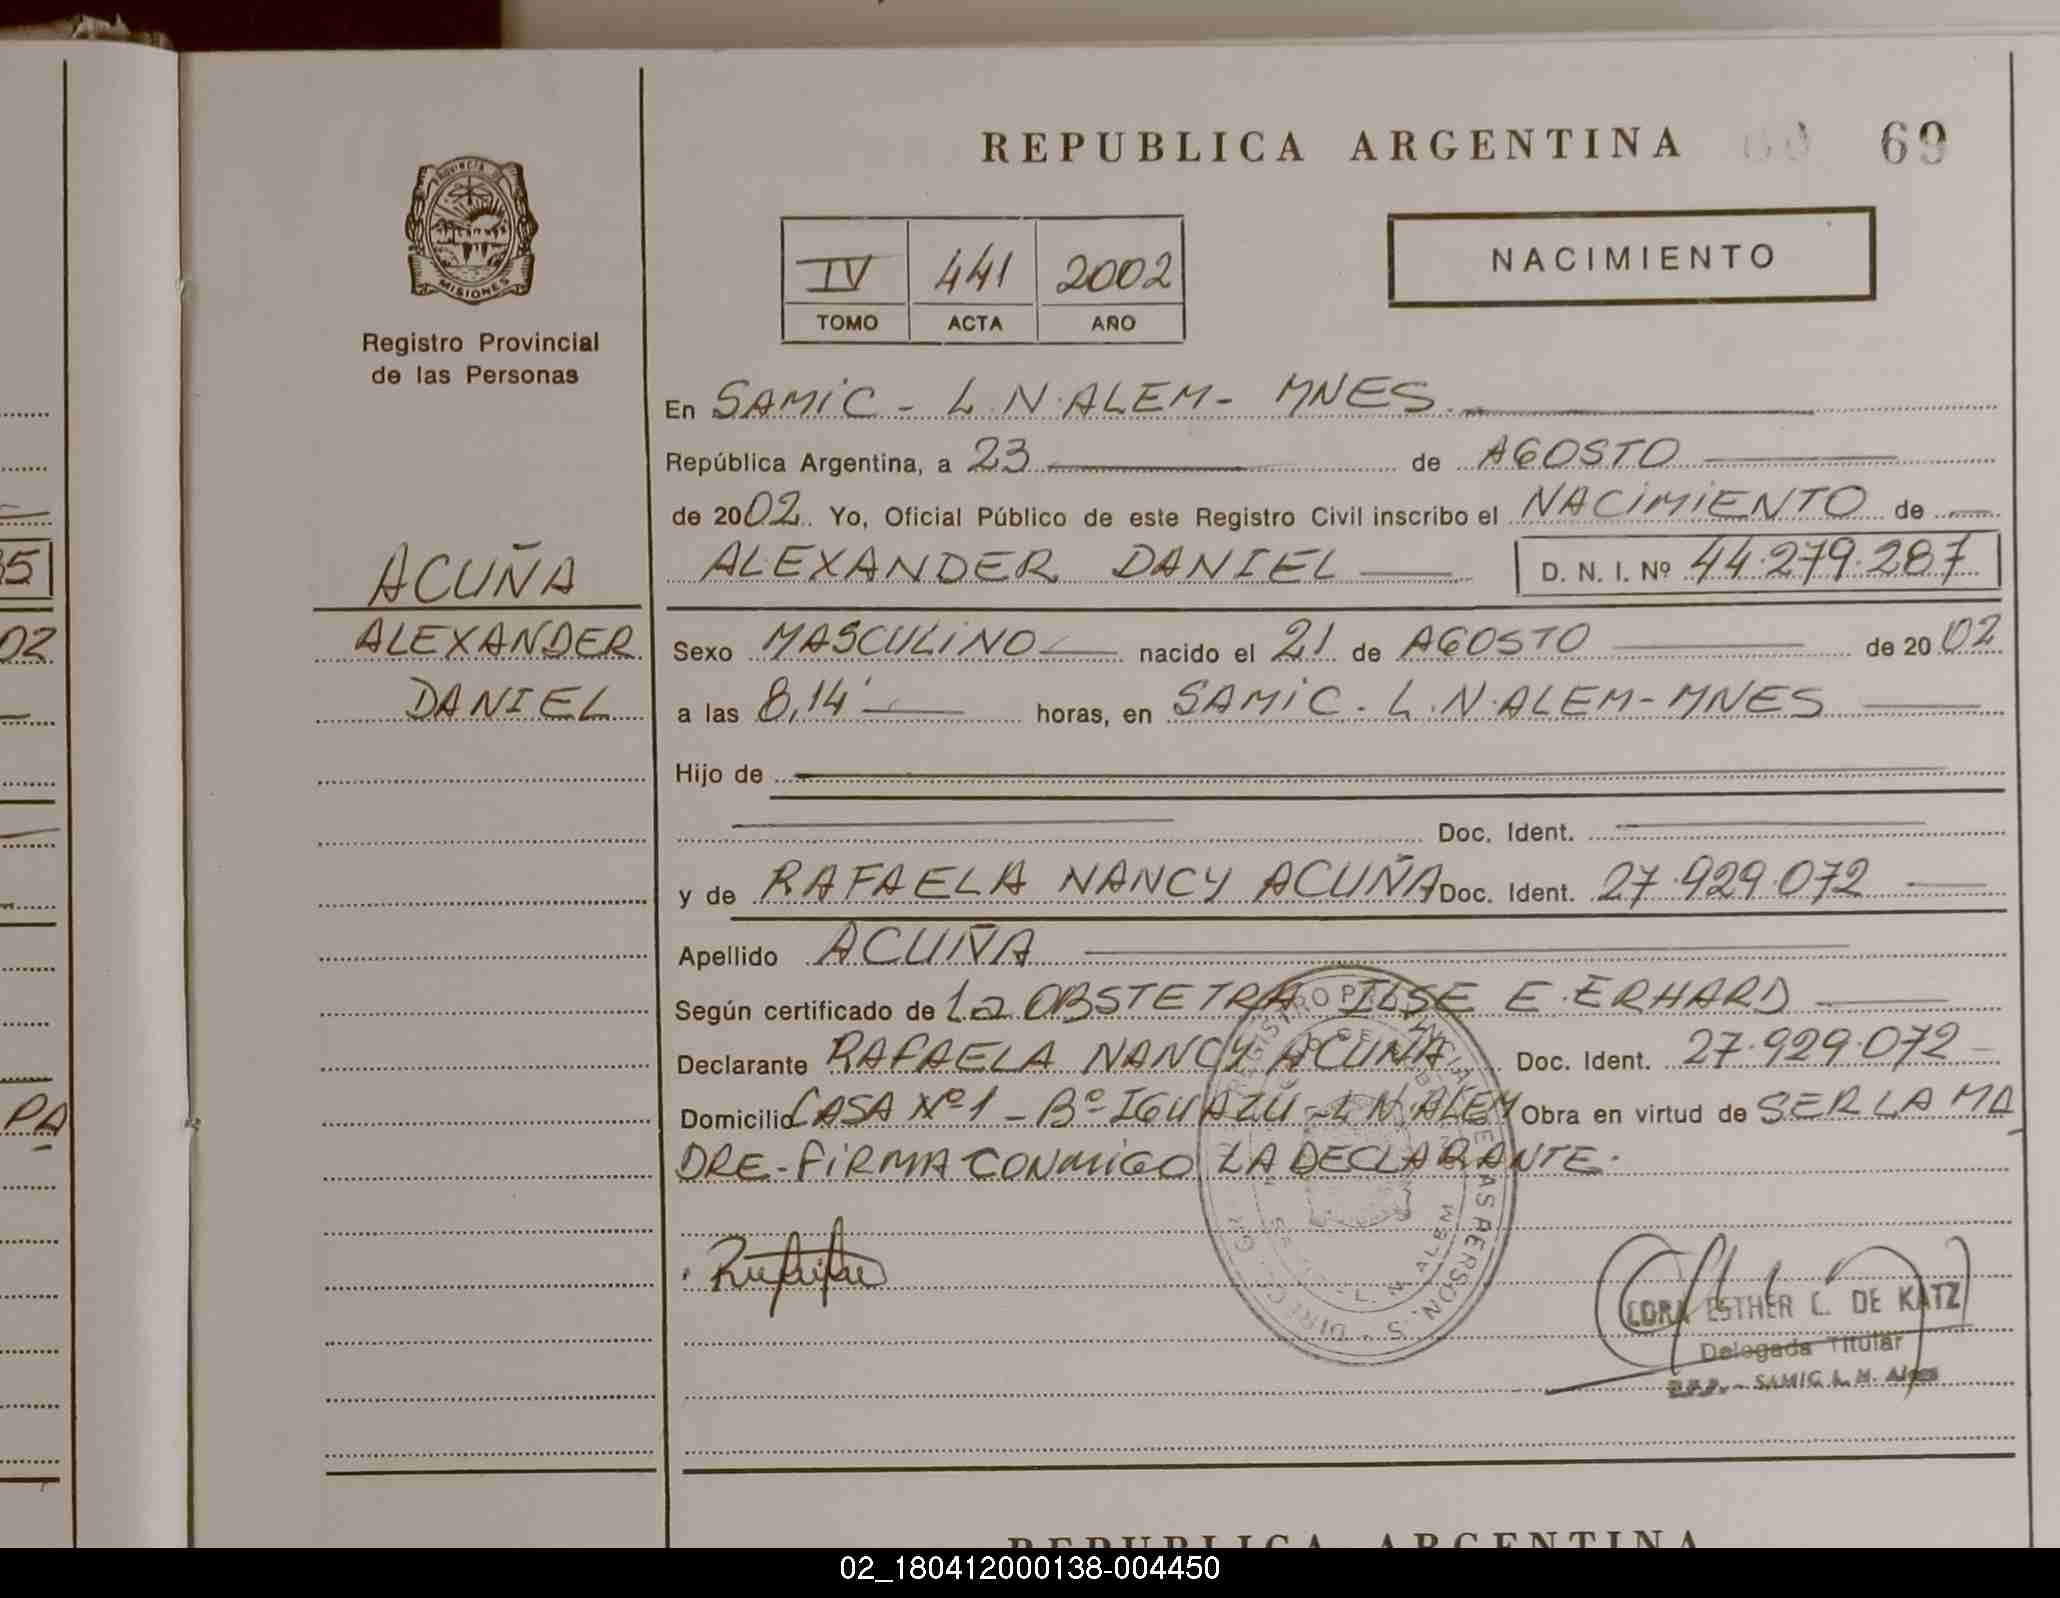 REPUBLICA ARGENTINA 69
PROVINCIA DE
MISIONES
Registro Provincial
de las Personas
IV 441 2002
TOMO ACTA AÑO
NACIMIENTO
En SAMIC - L.N.ALEM - MNES.
República Argentina, a 23 de AGOSTO
de 2002. Yo, Oficial Público de este Registro Civil inscribo el NACIMIENTO de
ACUÑA
ALEXANDER DANIEL D. N. I. Nº 44.279.287
ALEXANDER
Sexo MASCULINO nacido el 21 de AGOSTO de 2002
DANIEL
a las 8,14' horas, en SAMIC. L.N.ALEM-MNES
Hijo de
Doc. Ident.
y de RAFAELA NANCY ACUÑA Doc. Ident. 27.929.072
Apellido ACUÑA
Según certificado de La OBSTETRA ILSE E. ERHARD
Declarante RAFAELA NANCY ACUÑA Doc. Ident. 27.929.072
Domicilio CASA Nº 1 - Bº IGUAZÚ - L.N.ALEM Obra en virtud de SER LA MA
DRE - FIRMA CONMIGO LA DECLARANTE.
CORA ESTHER C. DE KATZ
Delegada Titular
SAMIC L. N. Alem
35
02
PA
REPUBLICA ARGENTINA
02_180412000138-004450